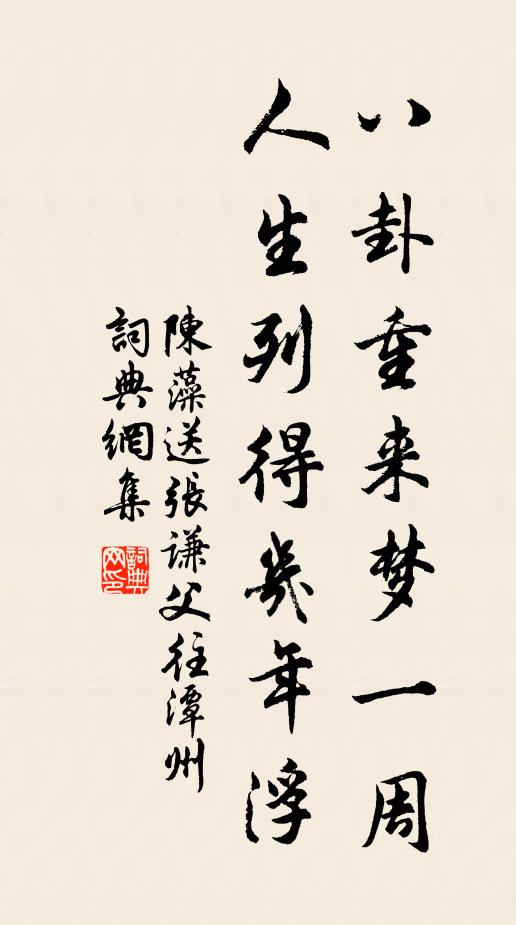 八卦重来梦一周
人生列得几年浮
陳藻送張谦父往潭州
詞典網集
詞典网印